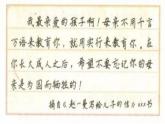 我最亲爱的孩子啊！母亲不用千言
万语来教育你，就用实行来教育你。在
你长大成人之后，希望不要忘记你的母
亲是为国而牺牲的！
摘自《赵一曼写给儿子的信》